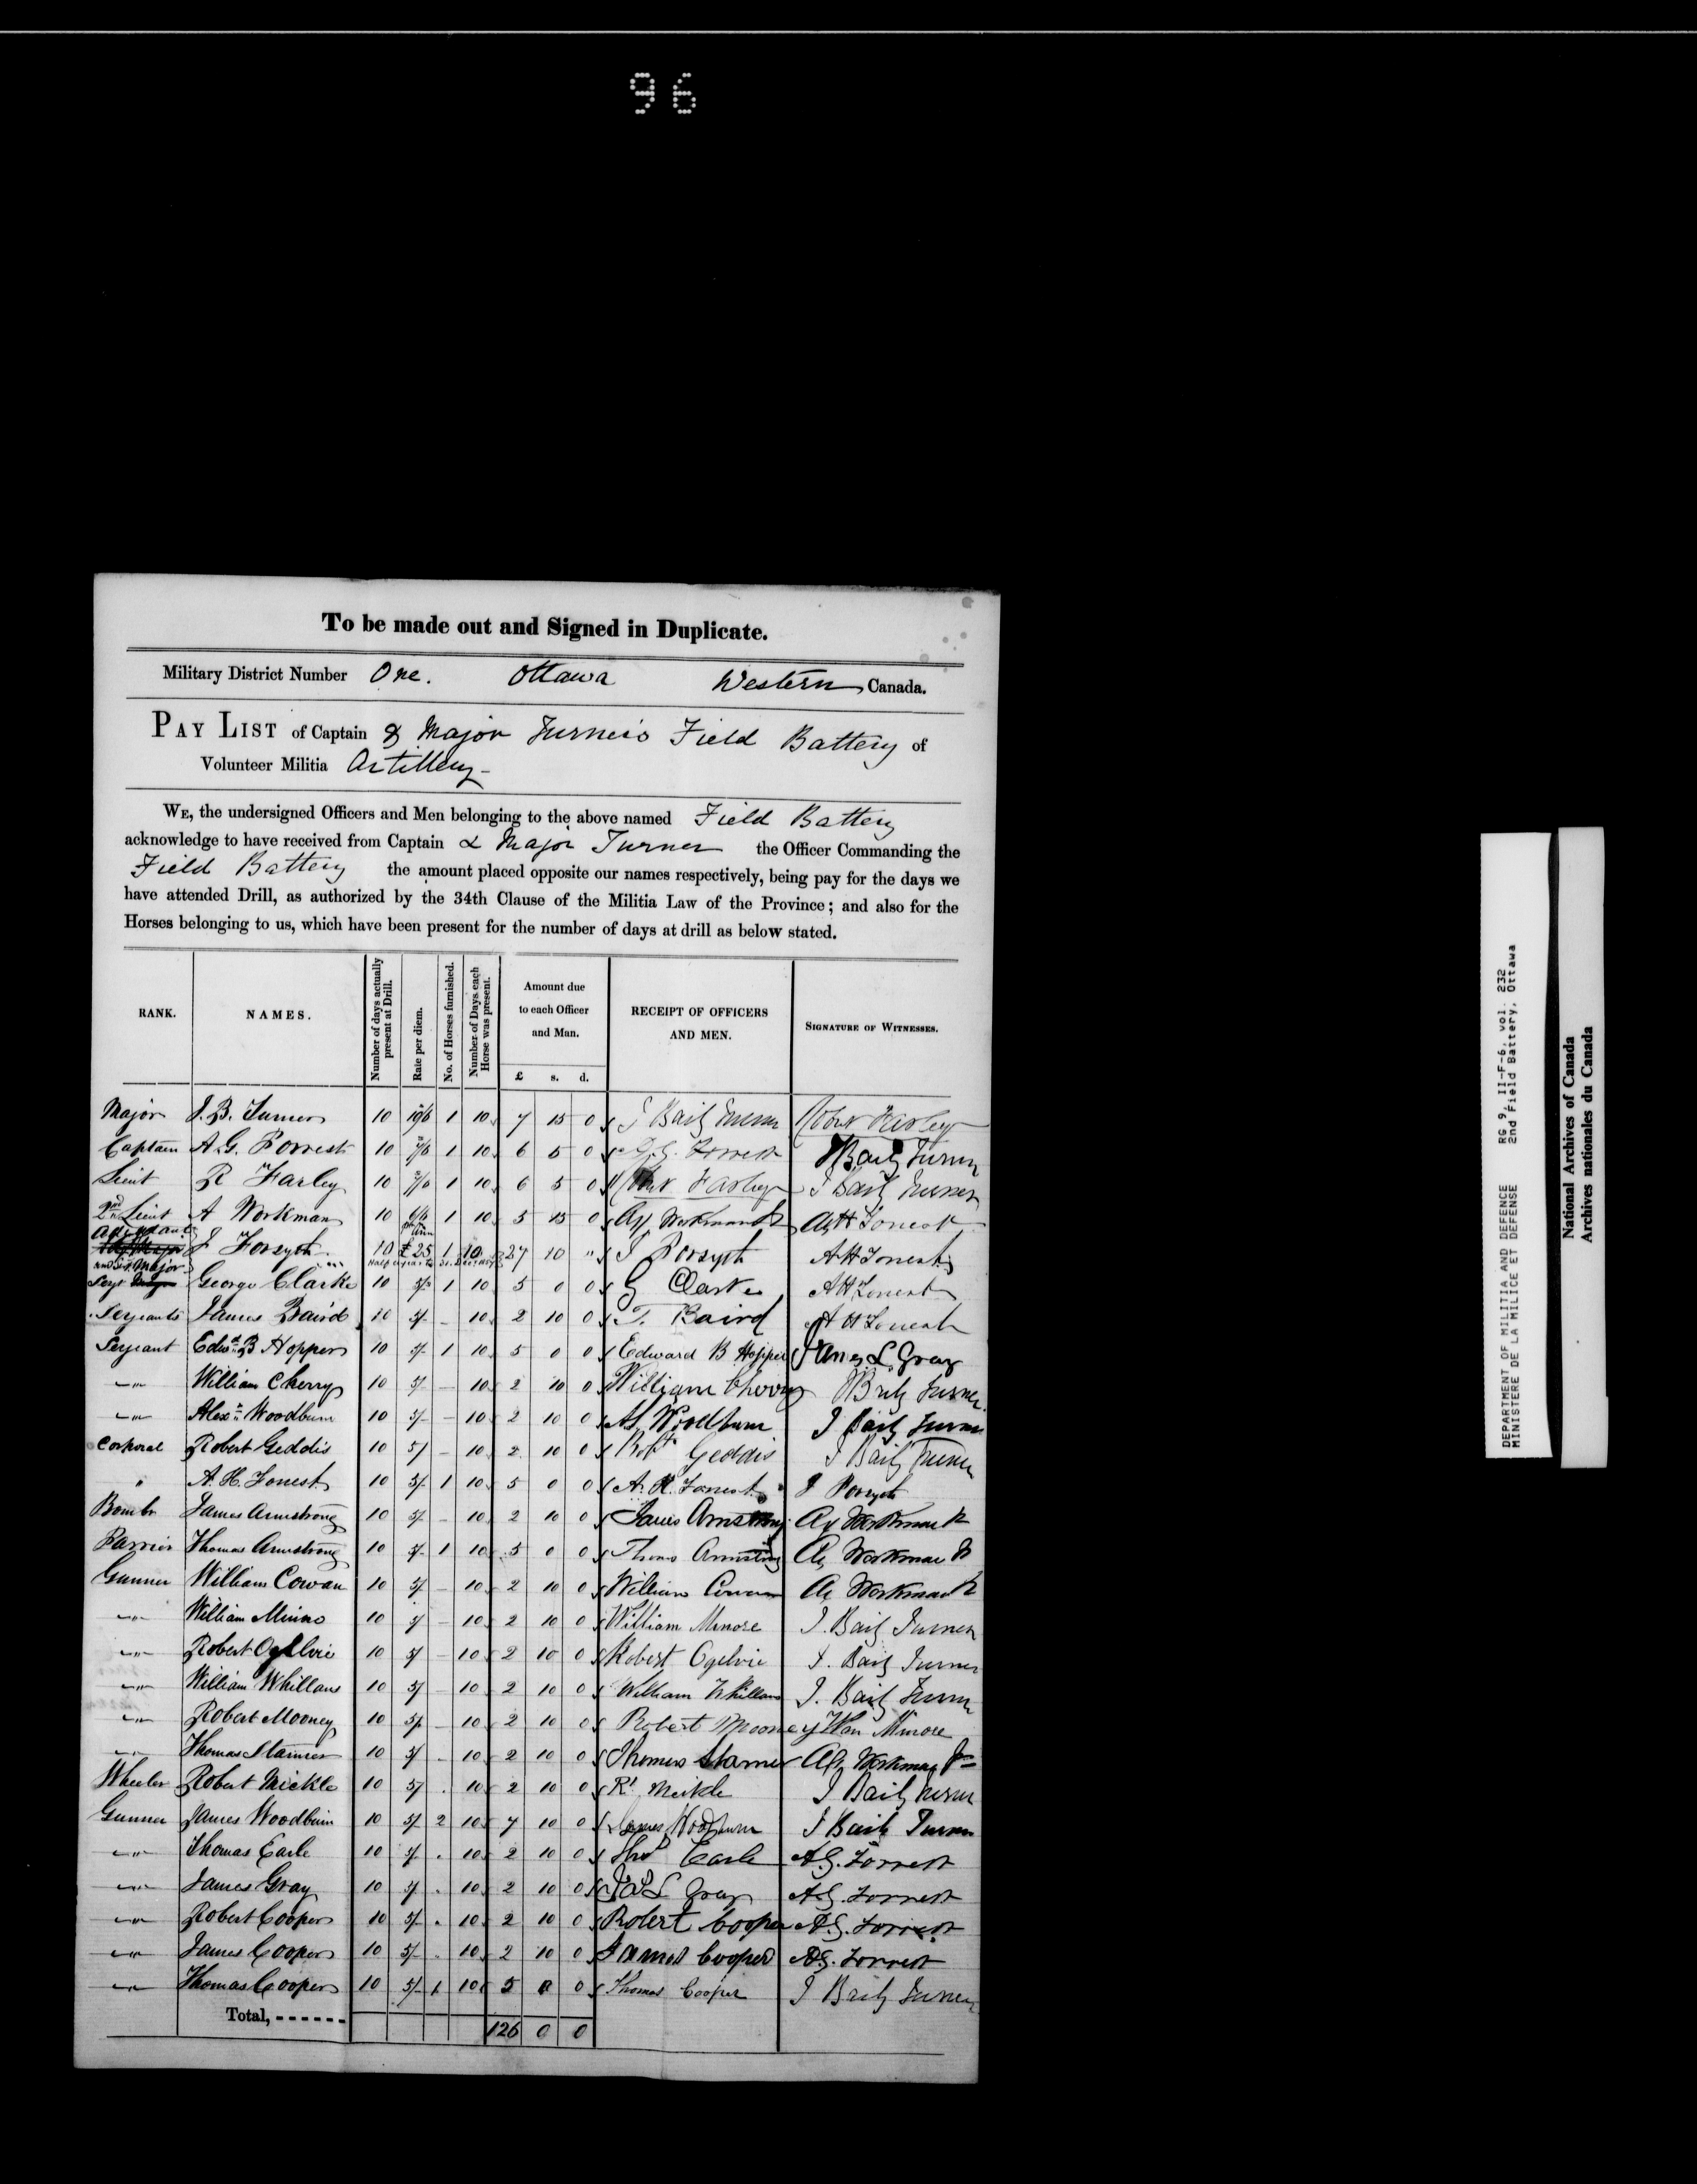 96
To be made out and Signed in Duplicate.
Military District Number One. Ottawa Western Canada.
PAY LIST of Captain & Major Turner's Field Battery of
Volunteer Militia Artillery
WE, the undersigned Officers and Men belonging to the above named Field Battery
acknowledge to have received from Captain & Major Turner the Officer Commanding the
Field Battery the amount placed opposite our names respectively, being pay for the days we
have attended Drill, as authorized by the 34th Clause of the Militia Law of the Province; and also for the
Horses belonging to us, which have been present for the number of days at drill as below stated.
RANK. NAMES. Number of days actually present at Drill. Rate per diem. No. of Horses furnished. Number of Days each Horse was present. Amount due to each Officer and Man. RECEIPT OF OFFICERS AND MEN. SIGNATURE OF WITNESSES.
£ s. d.
Major J. B. Turner 10 10/6 1 10 7 15 0 J Baily Turner Robert Farley
Captain A. G. Forrest 10 7/6 1 10 6 5 0 A. G. Forrest J Baily Turner
Lieut R Farley 10 7/6 1 10 6 5 0 Robert Farley J Baily Turner
2nd Lieut A Workman 10 6/6 1 10 5 15 0 Alx Workman Jr A H Forrest
Adjutant J Forsyth 10 £25 1 10 27 10 " J Forsyth A H Forrest
and Sergt Major
Sergt George Clarke 10 5/- 1 10 5 0 0 G Clarke A H Forrest
Sergeants James Baird 10 5/- - 10 2 10 0 J. Baird A H Forrest
Sergeant Edwd B Hopper 10 5/- 1 10 5 0 0 Edward B Hopper James L Gray
" William Cherry 10 5/- - 10 2 10 0 William Cherry J Baily Turner
" Alexr Woodburn 10 5/- - 10 2 10 0 Al Woodburn J Baily Turner
Corporal Robert Geddis 10 5/ - 10 2 10 0 Robt Geddis J Baily Turner
" A. H. Forrest 10 5/- 1 10 5 0 0 A. H. Forrest J Forsyth
Bombr James Armstrong 10 5/- - 10 2 10 0 James Armstrong Alx Workman Jr
Farrier Thomas Armstrong 10 5/- 1 10 5 0 0 Thomas Armstrong Alx Workman Jr
Gunner William Cowan 10 5/- - 10 2 10 0 William Cowan Alx Workman Jr
" William Minro 10 5/ - 10 2 10 0 William Minore J. Baily Turner
" Robert Ogilvie 10 5/ - 10 2 10 0 Robert Ogelvie J. Baily Turner
" William Whillans 10 5/ - 10 2 10 0 William Whillans J. Baily Turner
" Robert Mooney 10 5/- - 10 2 10 0 Robert Mooney Wm Minore
" Thomas Starmer 10 5/ - 10 2 10 0 Thomas Starmer Alx Workman Jr
Wheeler Robert Mickle 10 5/ . 10 2 10 0 Rt Meikle J Baily Turner
Gunner James Woodburn 10 5/- 2 10 7 10 0 James Woodburn J Baily Turner
" Thomas Earle 10 5/- . 10 2 10 0 Thos Earle A. G. Forrest
" James Gray 10 5/ . 10 2 10 0 Jas L Gray A. G. Forrest
" Robert Cooper 10 5/- . 10 2 10 0 Robert Cooper A. G. Forrest
" James Cooper 10 5/- . 10 2 10 0 James Cooper A. G. Forrest
" Thomas Cooper 10 5/- 1 10 5 0 0 Thomas Cooper J Baily Turner
Total, - - - - - - 126 0 0
DEPARTMENT OF MILITIA AND DEFENCE RG 9, II-F-6, vol. 232
MINISTERE DE LA MILICE ET DEFENSE 2nd Field Battery, Ottawa
National Archives of Canada
Archives nationales du Canada